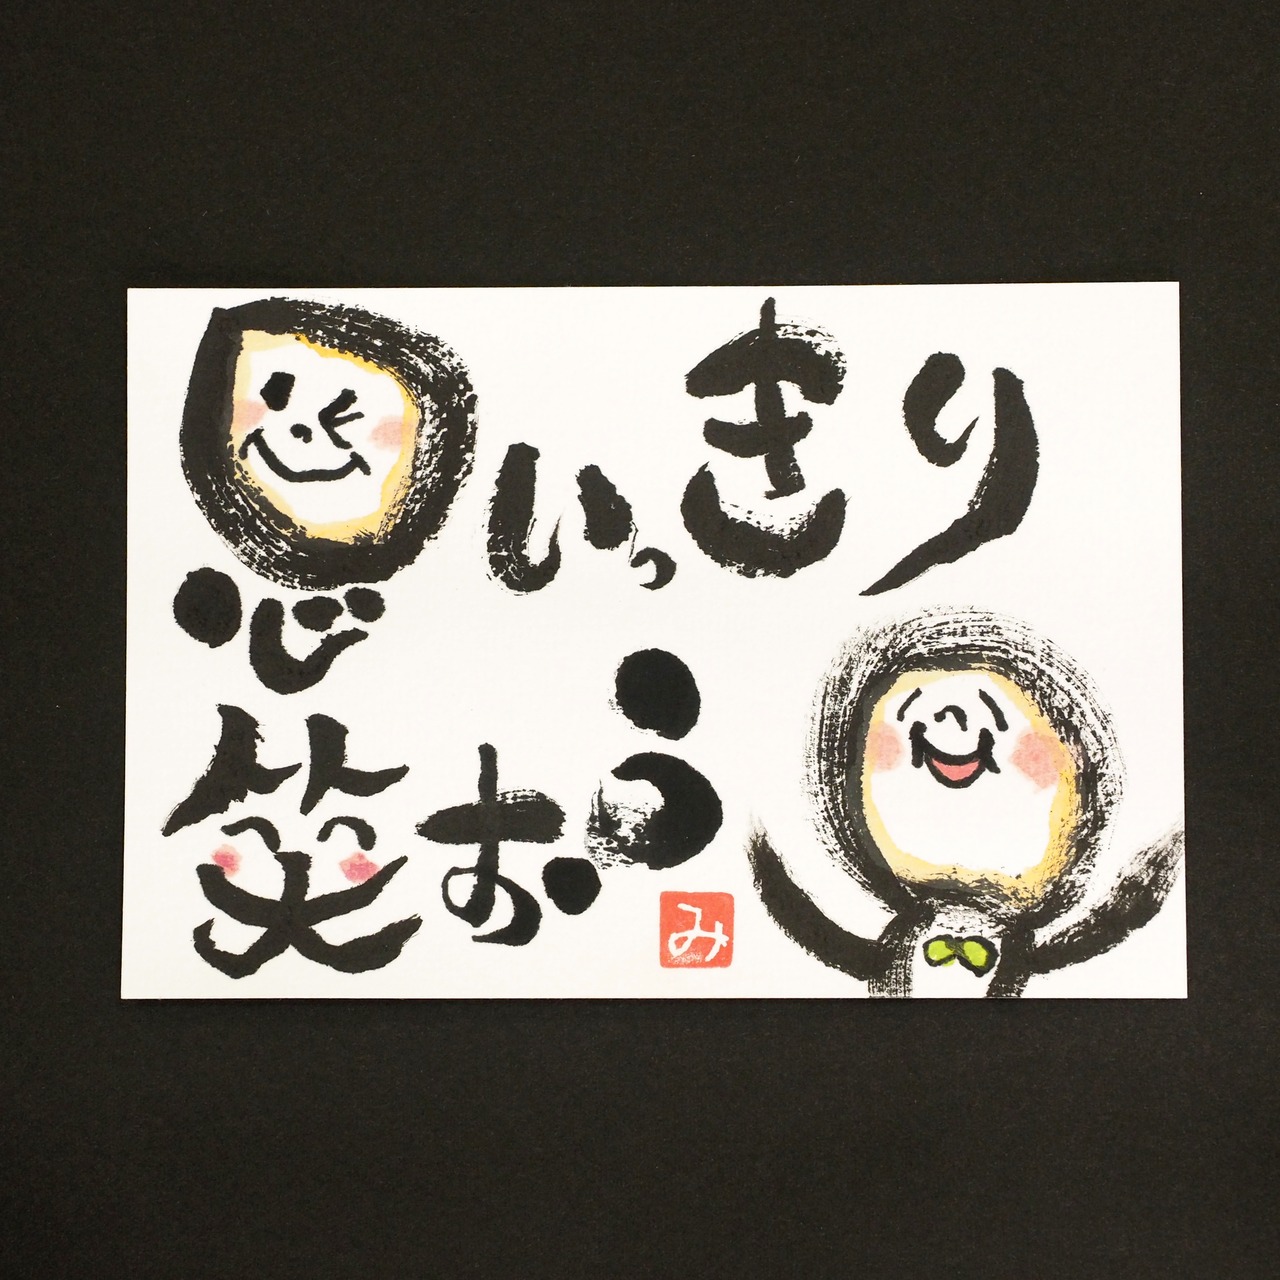 思いっきり
笑おう
み